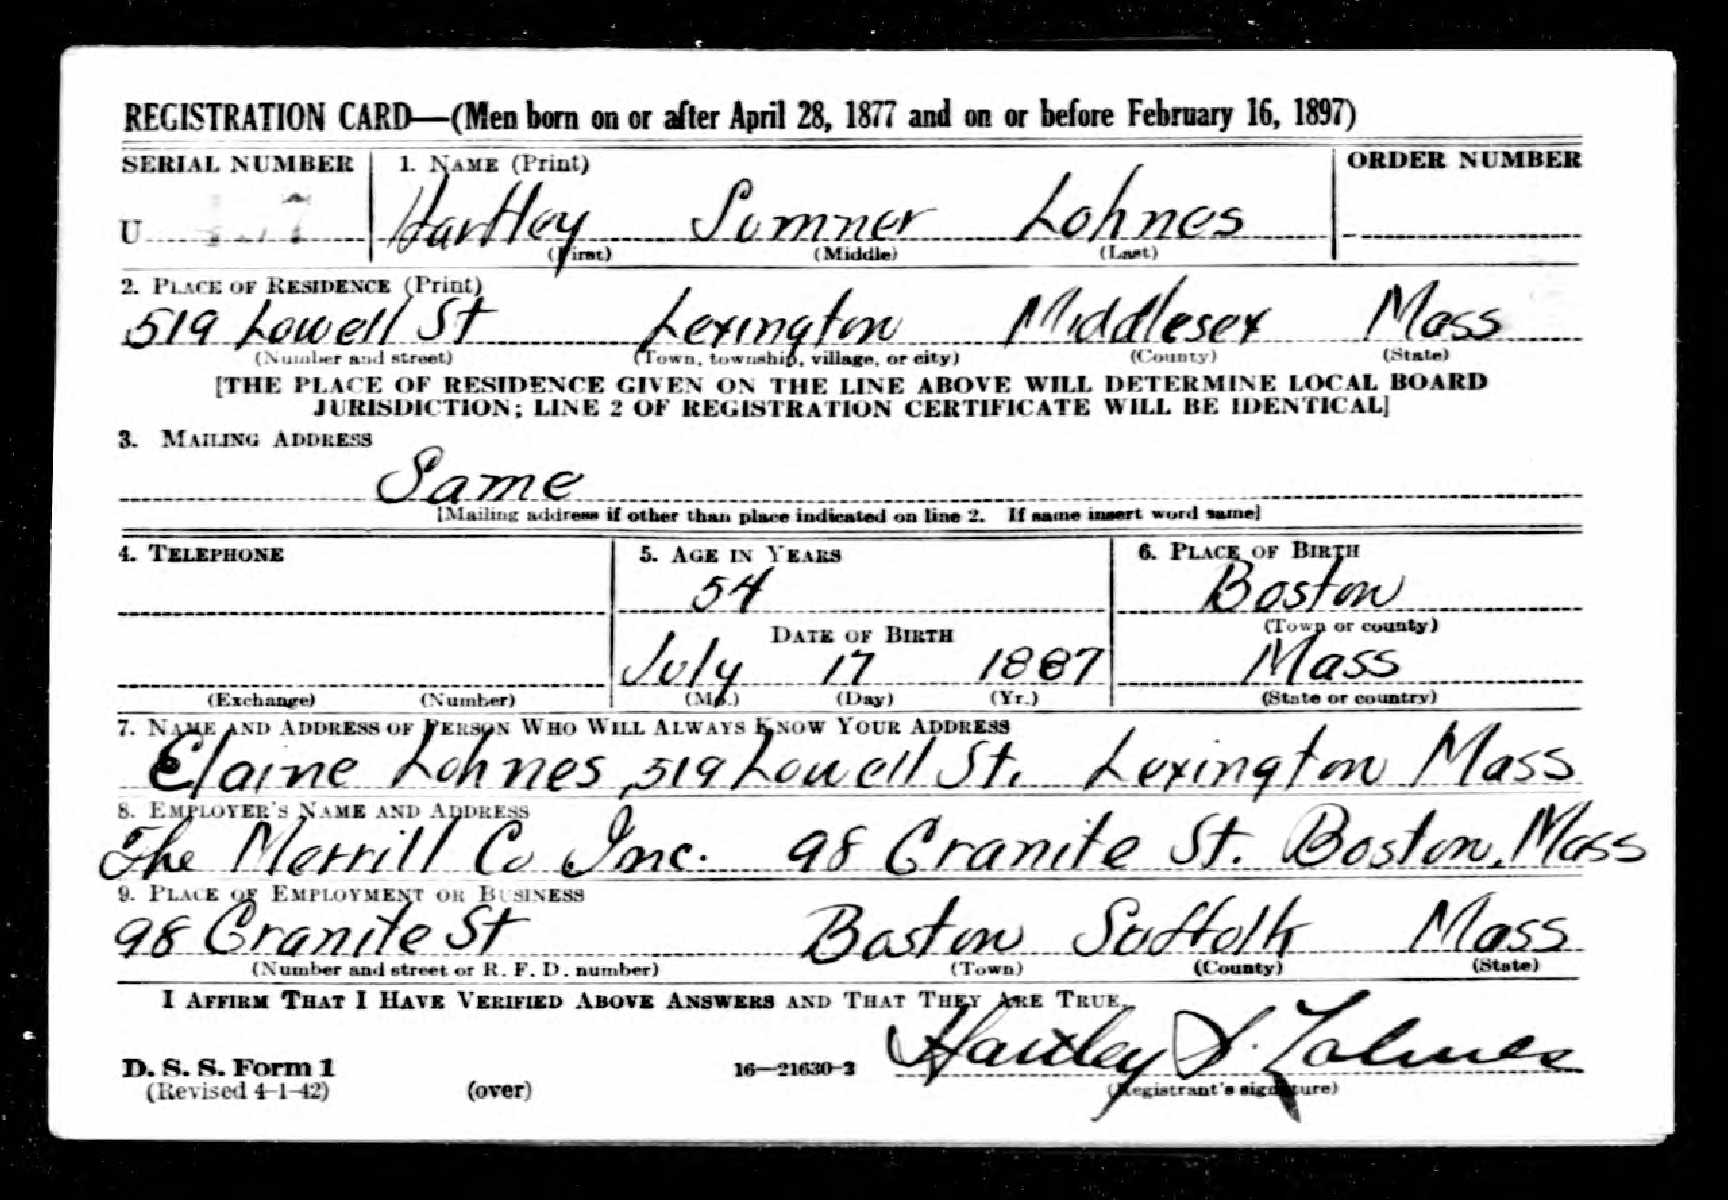 REGISTRATION CARD—(Men born on or after April 28, 1877 and on or before February 16, 1897)
SERIAL NUMBER 1. NAME (Print) ORDER NUMBER
U Hartley Sumner Lohnes
(First) (Middle) (Last)
2. PLACE OF RESIDENCE (Print)
519 Lowell St Lexington Middlesex Mass
(Number and street) (Town, township, village, or city) (County) (State)
[THE PLACE OF RESIDENCE GIVEN ON THE LINE ABOVE WILL DETERMINE LOCAL BOARD
JURISDICTION; LINE 2 OF REGISTRATION CERTIFICATE WILL BE IDENTICAL]
3. MAILING ADDRESS
Same
[Mailing address if other than place indicated on line 2. If same insert word same]
4. TELEPHONE 5. AGE IN YEARS 6. PLACE OF BIRTH
54 Boston
DATE OF BIRTH (Town or county)
July 17 1887 Mass
(Exchange) (Number) (Mo.) (Day) (Yr.) (State or country)
7. NAME AND ADDRESS OF PERSON WHO WILL ALWAYS KNOW YOUR ADDRESS
Elaine Lohnes, 519 Lowell St. Lexington Mass
8. EMPLOYER'S NAME AND ADDRESS
The Merrill Co Inc. 98 Granite St. Boston, Mass
9. PLACE OF EMPLOYMENT OR BUSINESS
98 Granite St Boston Suffolk Mass
(Number and street or R. F. D. number) (Town) (County) (State)
I AFFIRM THAT I HAVE VERIFIED ABOVE ANSWERS AND THAT THEY ARE TRUE.
Hartley S. Lohnes
D. S. S. Form 1 16—21630-2
(Revised 4-1-42) (over) (Registrant's signature)